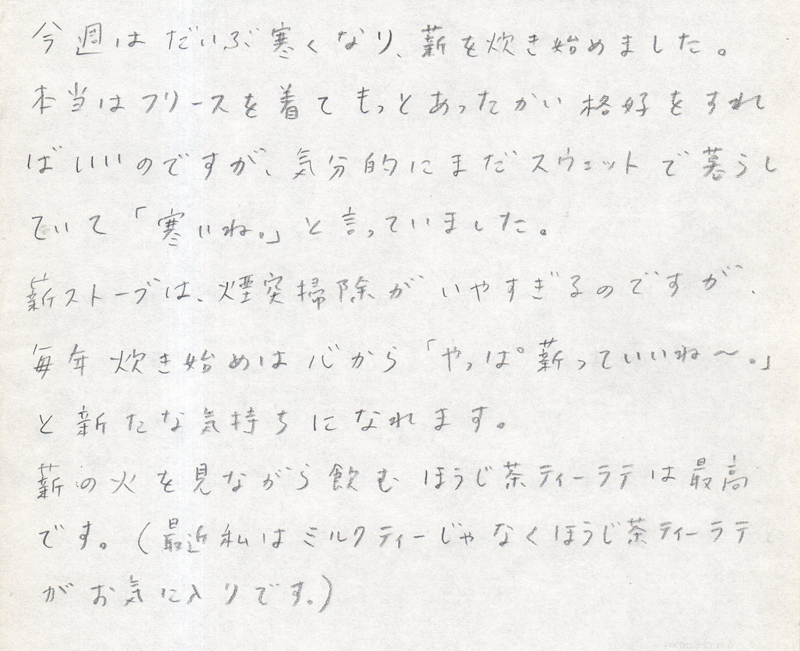 今週はだいぶ寒くなり、薪を炊き始めました。
本当はフリースを着てもっとあったかい格好をすれ
ばいいのですが、気分的にまだスウェットで暮らし
ていて「寒いね。」と言っていました。
薪ストーブは、煙突掃除がいやすぎるのですが、
毎年炊き始めは心から「やっぱ薪っていいね〜。」
と新たな気持ちになれます。
薪の火を見ながら飲むほうじ茶ティーラテは最高
です。(最近私はミルクティーじゃなくほうじ茶ティーラテ
がお気に入りです。)